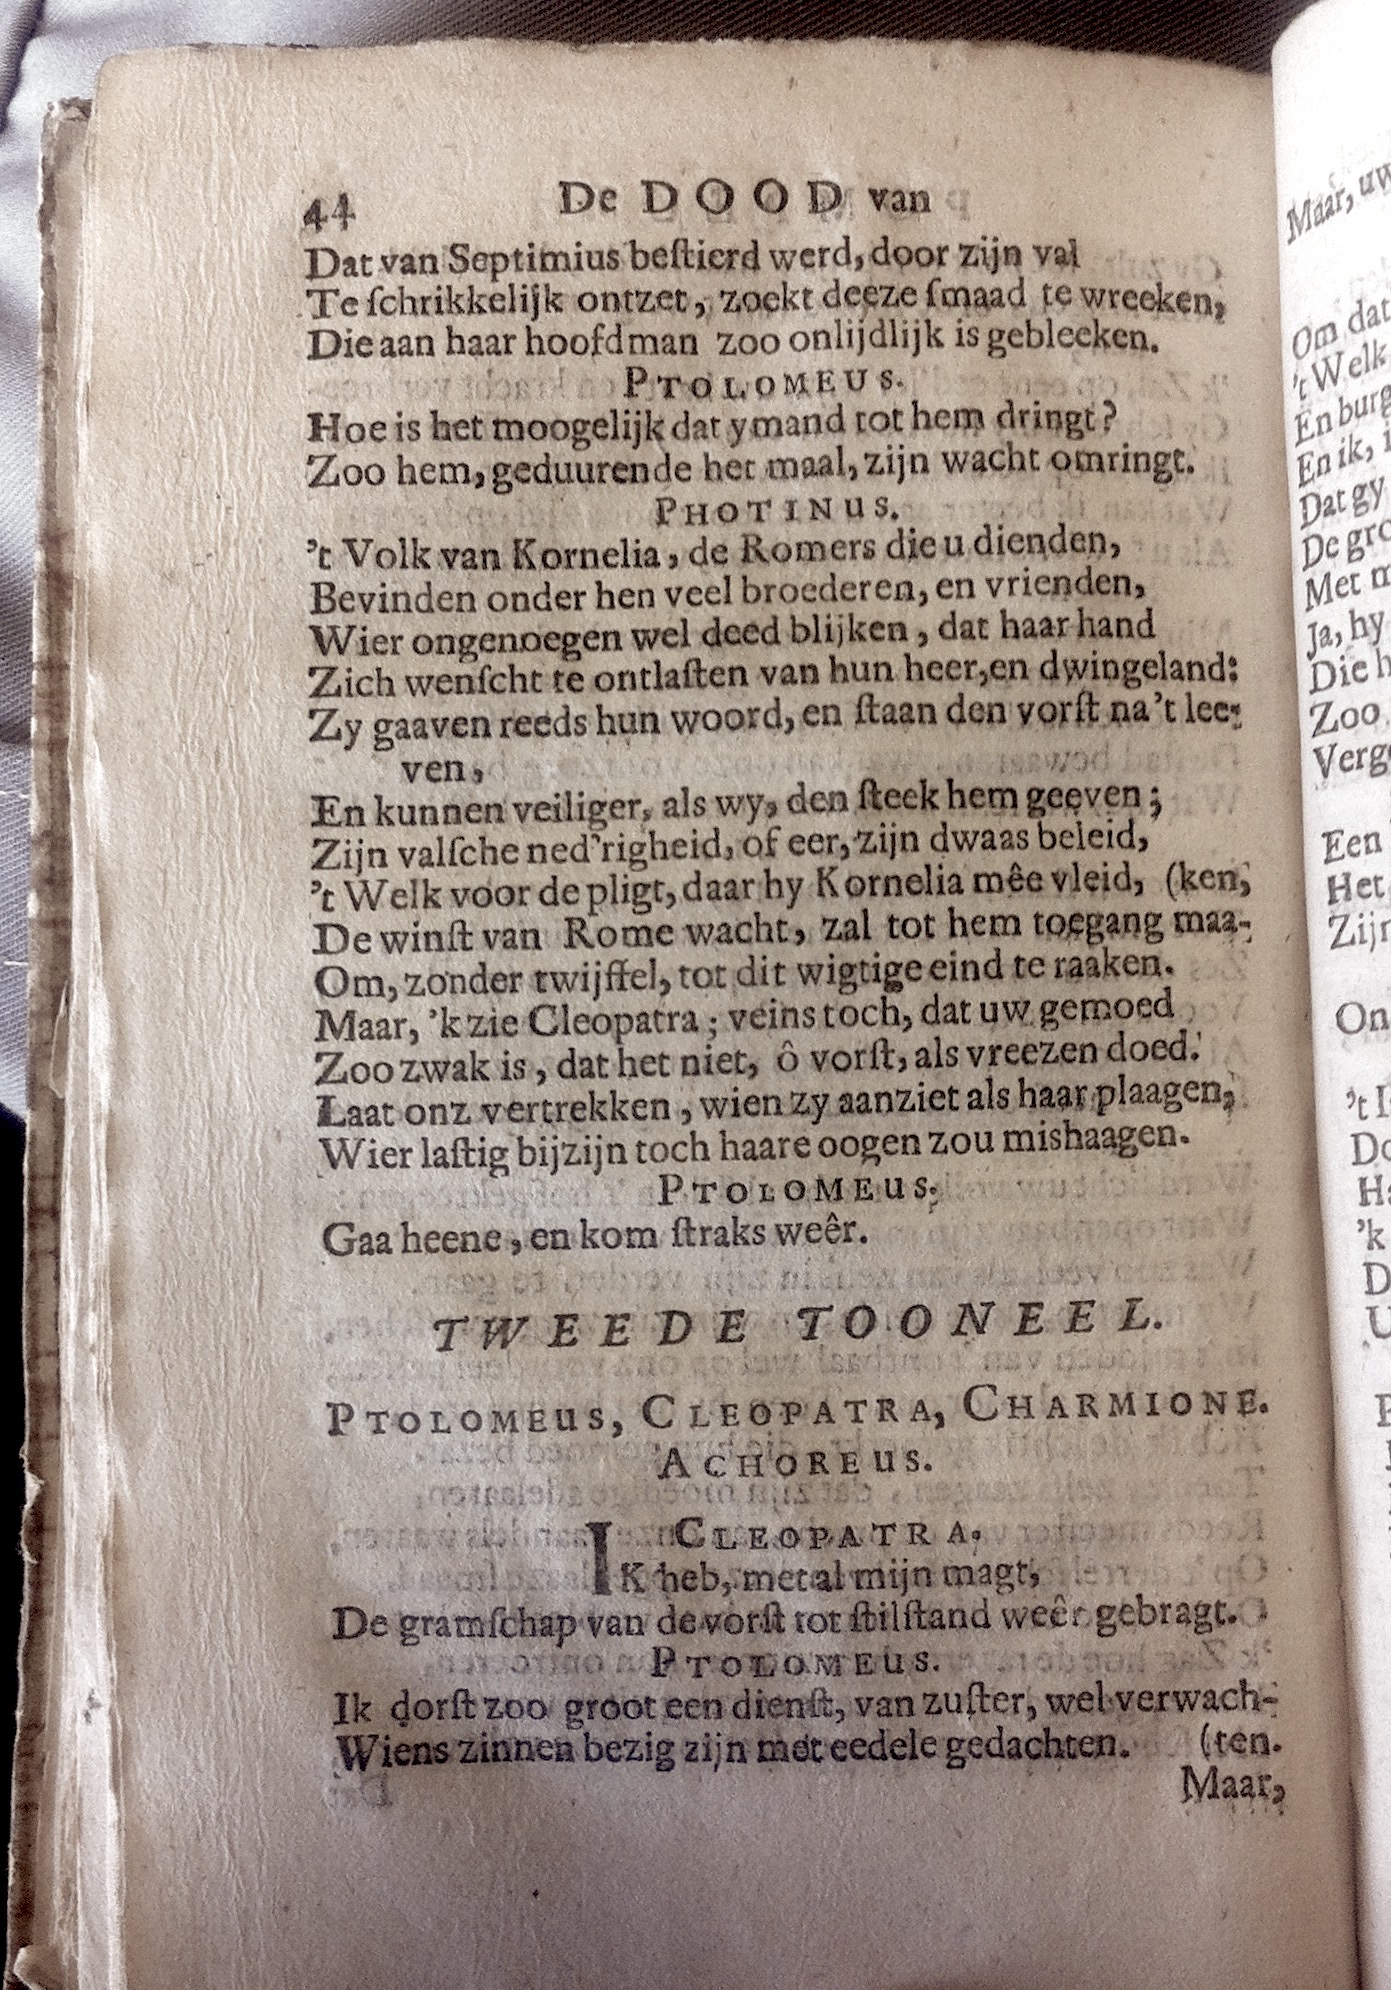 44 De DOOD van
Dat van Septimius beſtierd werd, door zijn val
Te ſchrikkelijk ontzet, zoekt deeze ſmaad te wreeken,
Die aan haar hoofdman zoo onlijdlijk is gebleeken.
PTOLOMEUS.
Hoe is het moogelijk dat ymand tot hem dringt?
Zoo hem, geduurende het maal, zijn wacht omringt.
PHOTINUS.
't Volk van Kornelia, de Romers die u dienden,
Bevinden onder hen veel broederen, en vrienden,
Wier ongenoegen wel deed blijken, dat haar hand
Zich wenſcht te ontlaſten van hun heer, en dwingeland:
Zy gaaven reeds hun woord, en ſtaan den vorſt na't lee-
ven,
En kunnen veiliger, als wy, den ſteek hem geeven;
Zijn valſche ned'righeid, of eer, zijn dwaas beleid,
't Welk voor de pligt, daar hy Kornelia mêe vleid, (ken,
De winſt van Rome wacht, zal tot hem toegang maa-
Om, zonder twijffel, tot dit wigtige eind te raaken.
Maar, 'k zie Cleopatra; veins toch, dat uw gemoed
Zoo zwak is, dat het niet, ô vorſt, als vreezen doed.
Laat onz vertrekken, wien zy aanziet als haar plaagen,
Wier laſtig bijzijn toch haare oogen zou mishaagen.
PTOLOMEUS.
Gaa heene, en kom ſtraks weêr.
TWEEDE TOONEEL.
PTOLOMEUS, CLEOPATRA, CHARMIONE.
ACHOREUS.
CLEOPATRA.
IK heb, met al mijn magt,
De gramſchap van de vorſt tot ſtilſtand weêr gebragt.
PTOLOMEUS.
Ik dorſt zoo groot een dienſt, van zuſter, wel verwach-
Wiens zinnen bezig zijn met eedele gedachten. (ten.
Maar,
Maar, uw
Om dat
't Welk
En burg
En ik,
Dat gy
De gro
Met
Ja, hy
Die
Zoo
Verg
Een
Het
Zijn
On
't
Do
'k